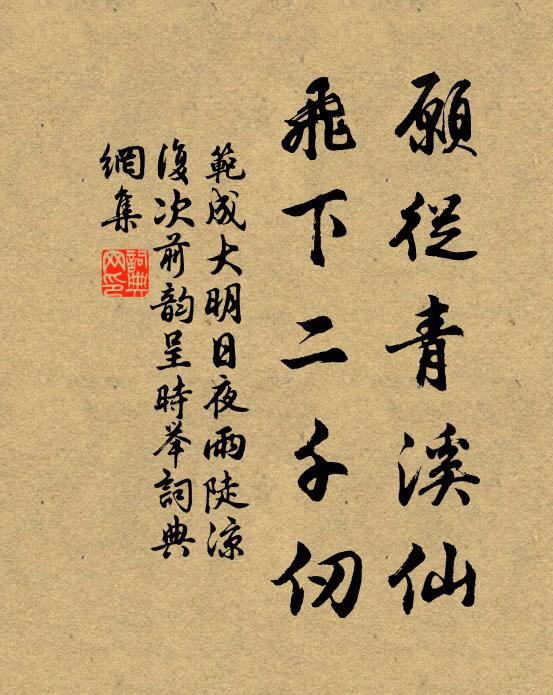 願從青溪仙
飛下二千仞
範成大明日夜雨陡涼
復次前韵呈時举詞典
網集
詞典
网印